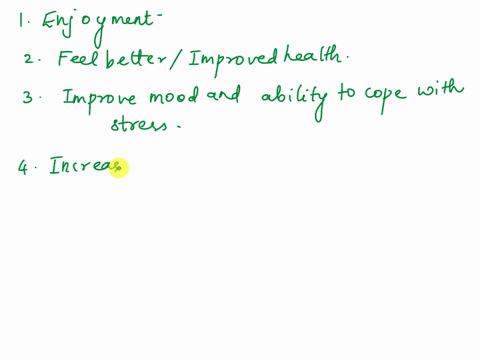 1. Enjoyment-
2. Feel better / Improved health.
3. Improve mood and ability to cope with
stress.
4. Increas